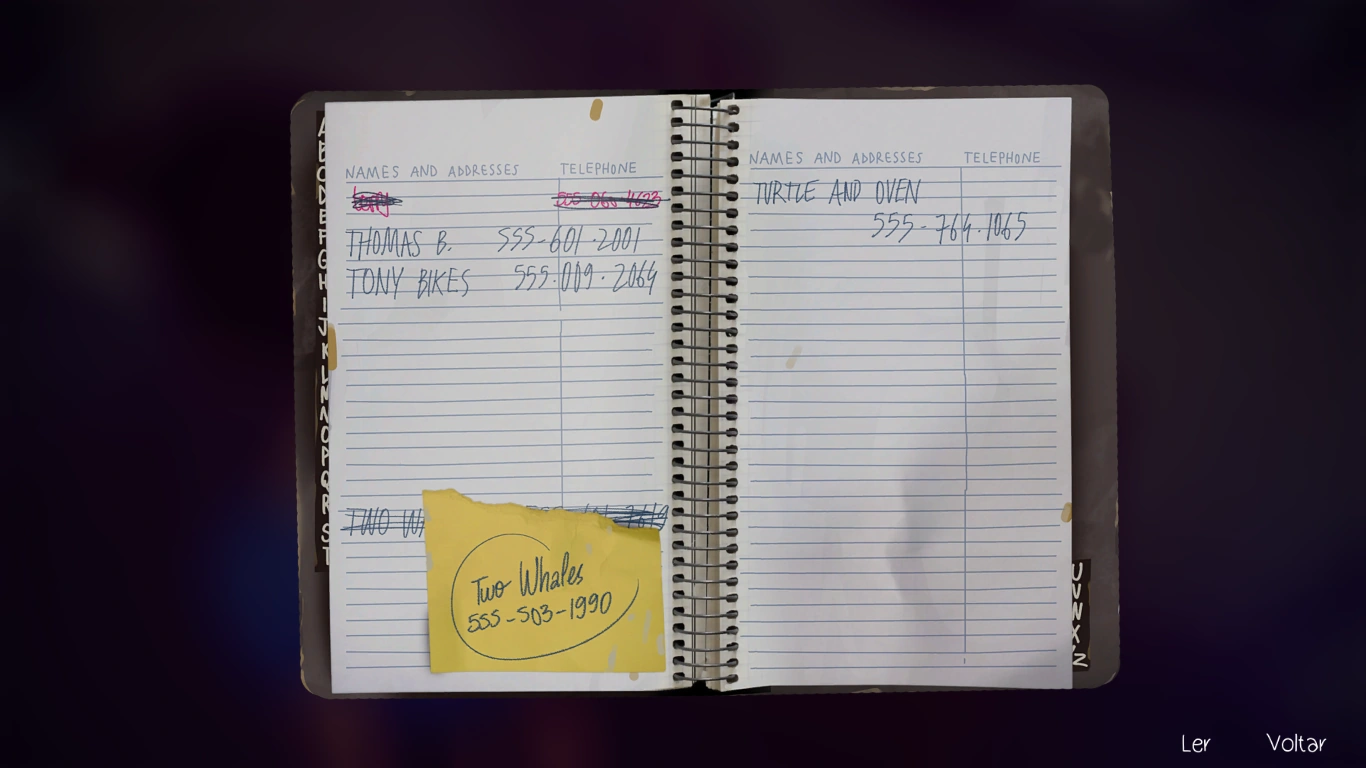 NAMES AND ADDRESSES TELEPHONE
THOMAS B. 555-601·2001
TONY BIKES 555·009·2064
TWO
Two Whales
555-503-1990
A
B
C
D
E
F
G
H
I
J
K
L
M
N
O
P
Q
R
S
T
NAMES AND ADDRESSES TELEPHONE
TURTLE AND OVEN
555-764·1065
U
V
W
X
Y
Z
Ler Voltar